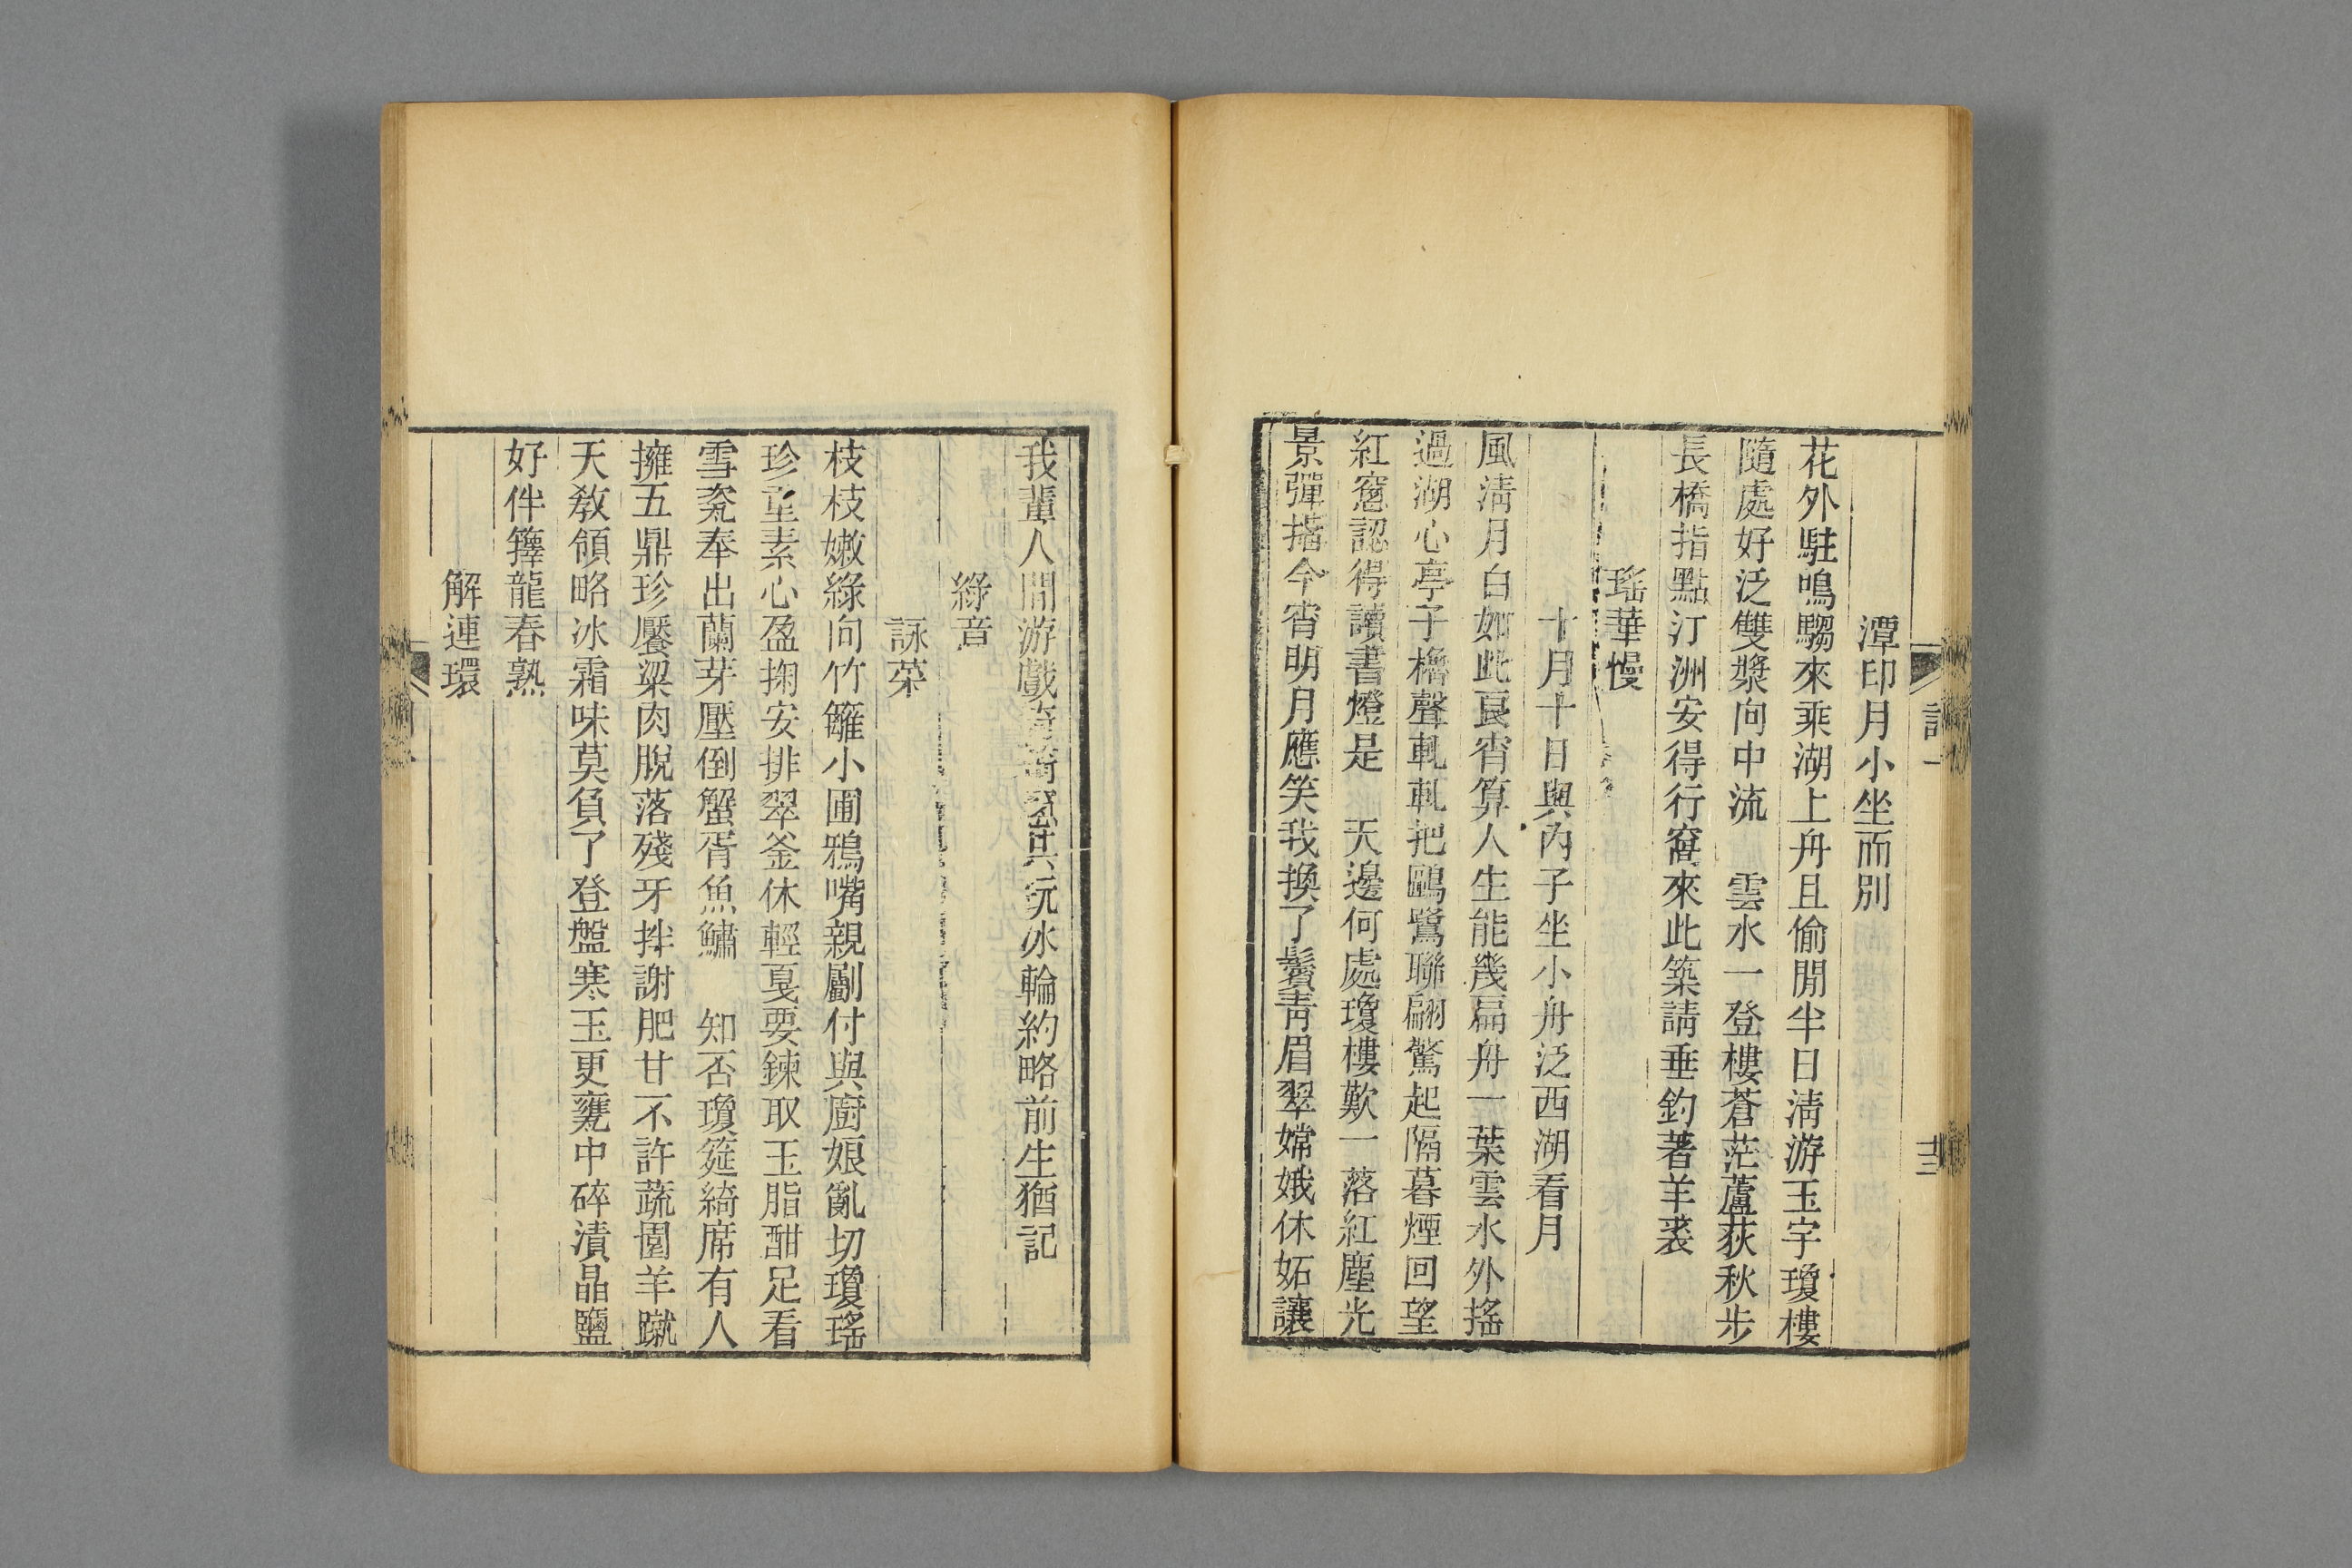 潭印月小坐而別
花外駐鳴騶來乘湖上舟且偷閒半日清游玉宇瓊樓
隨處好泛雙槳向中流　雲水一登樓蒼茫蘆荻秋步
長橋指點汀洲安得行窩來此築請垂釣著羊裘
瑤華慢
十月十日與內子坐小舟泛西湖看月
風淸月白如此良宵算人生能幾扁舟一葉雲水外搖
過湖心亭子櫓聲軋軋把鷗鷺聯翩驚起隔暮煙回望
紅窗認得讀書燈是　天邊何處瓊樓歎一落紅塵光
景彈指今宵明月應笑我換了鬢靑眉翠嫦娥休妬讓
我輩人間游戲共玩冰輪約略前生猶記
綠意
詠菜
枝枝嫩綠向竹籬小圃鴉嘴親劚付與廚娘亂切瓊瑤
珍重素心盈掬安排翠釜休輕戛要鍊取玉脂酣足看
雪瓷奉出蘭芽壓倒蟹胥魚鱐　知否瓊筵綺席有人
擁五鼎珍饜粱肉脫落殘牙拌謝肥甘不許蔬園羊蹴
天敎領略冰霜味莫負了登盤寒玉更甕中碎漬晶鹽
好伴籜龍春熟
解連環